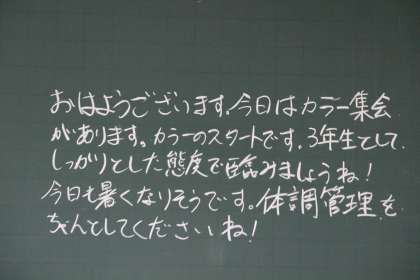 おはようございます。今日はカラー集会
があります。カラーのスタートです。3年生として
しっかりとした態度で臨みましょうね!
今日も暑くなりそうです。体調管理を
ちゃんとしてくださいね!